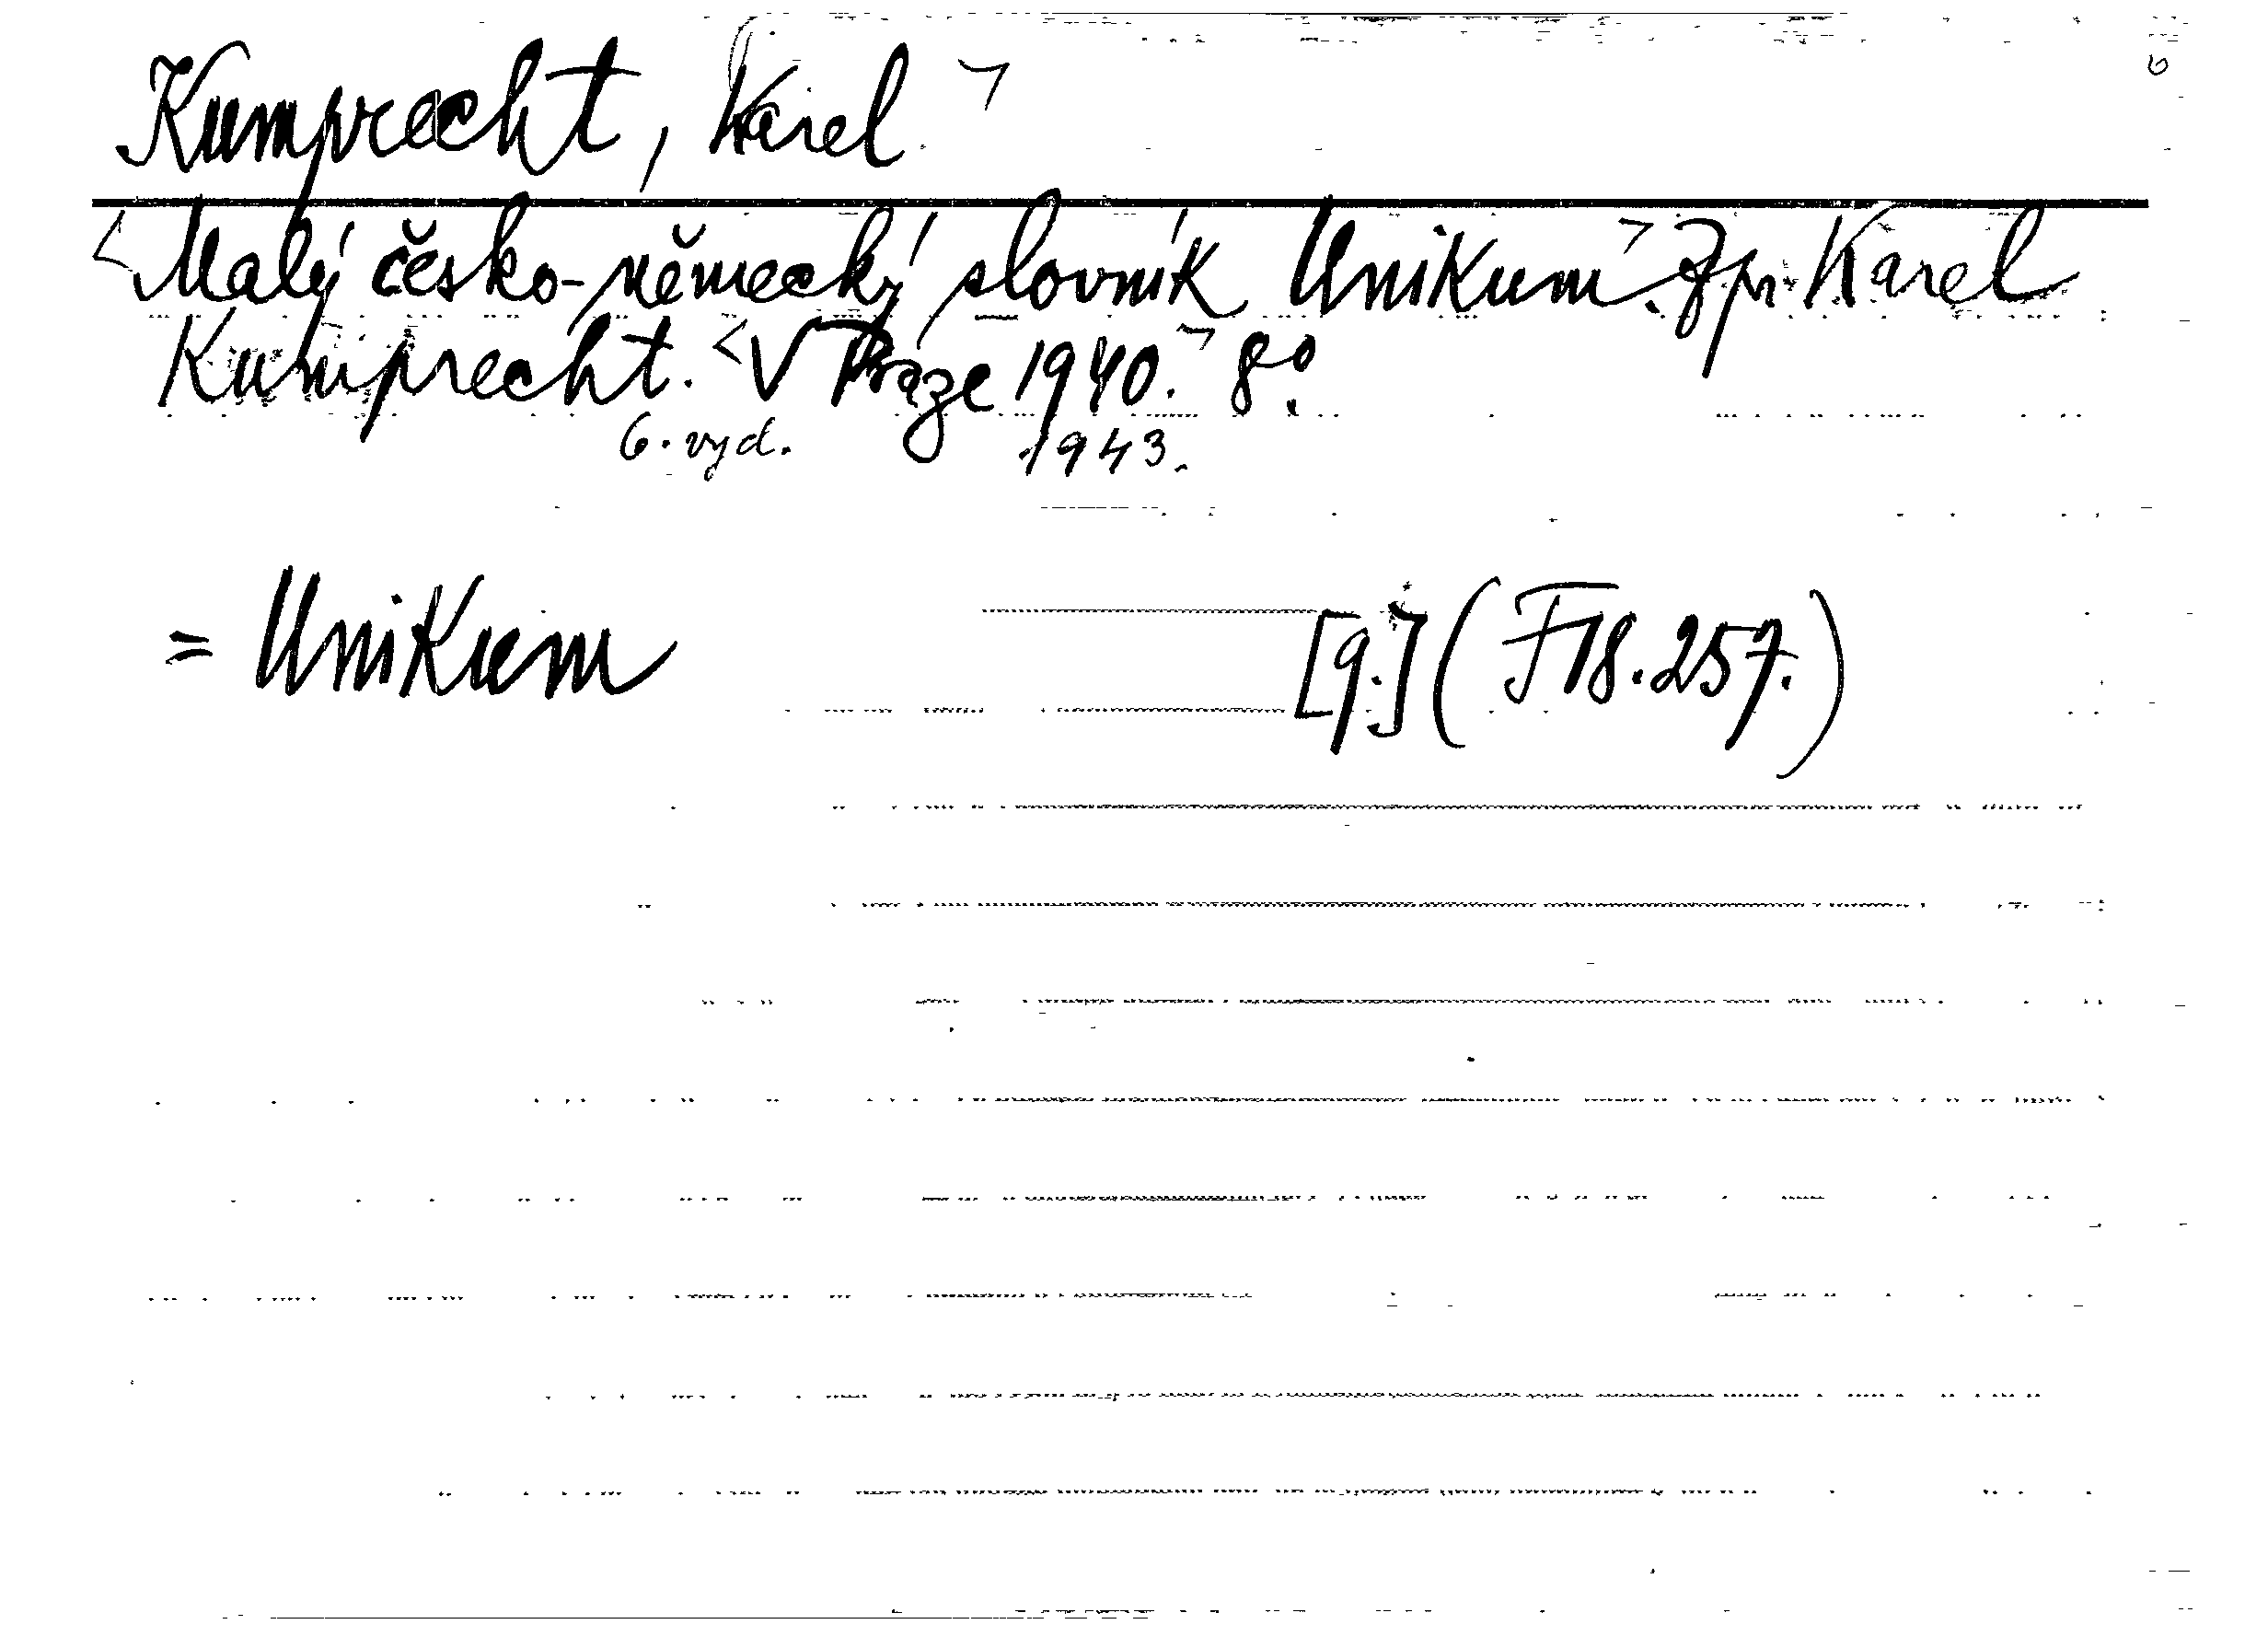 Kumprecht, Karel
Malý česko-německý slovník Unikum. Zpr. Karel
Kumprecht. V Praze 1940. 8°.
6. vyd. 1943.
= Unikum [q.] (F 18.257.)